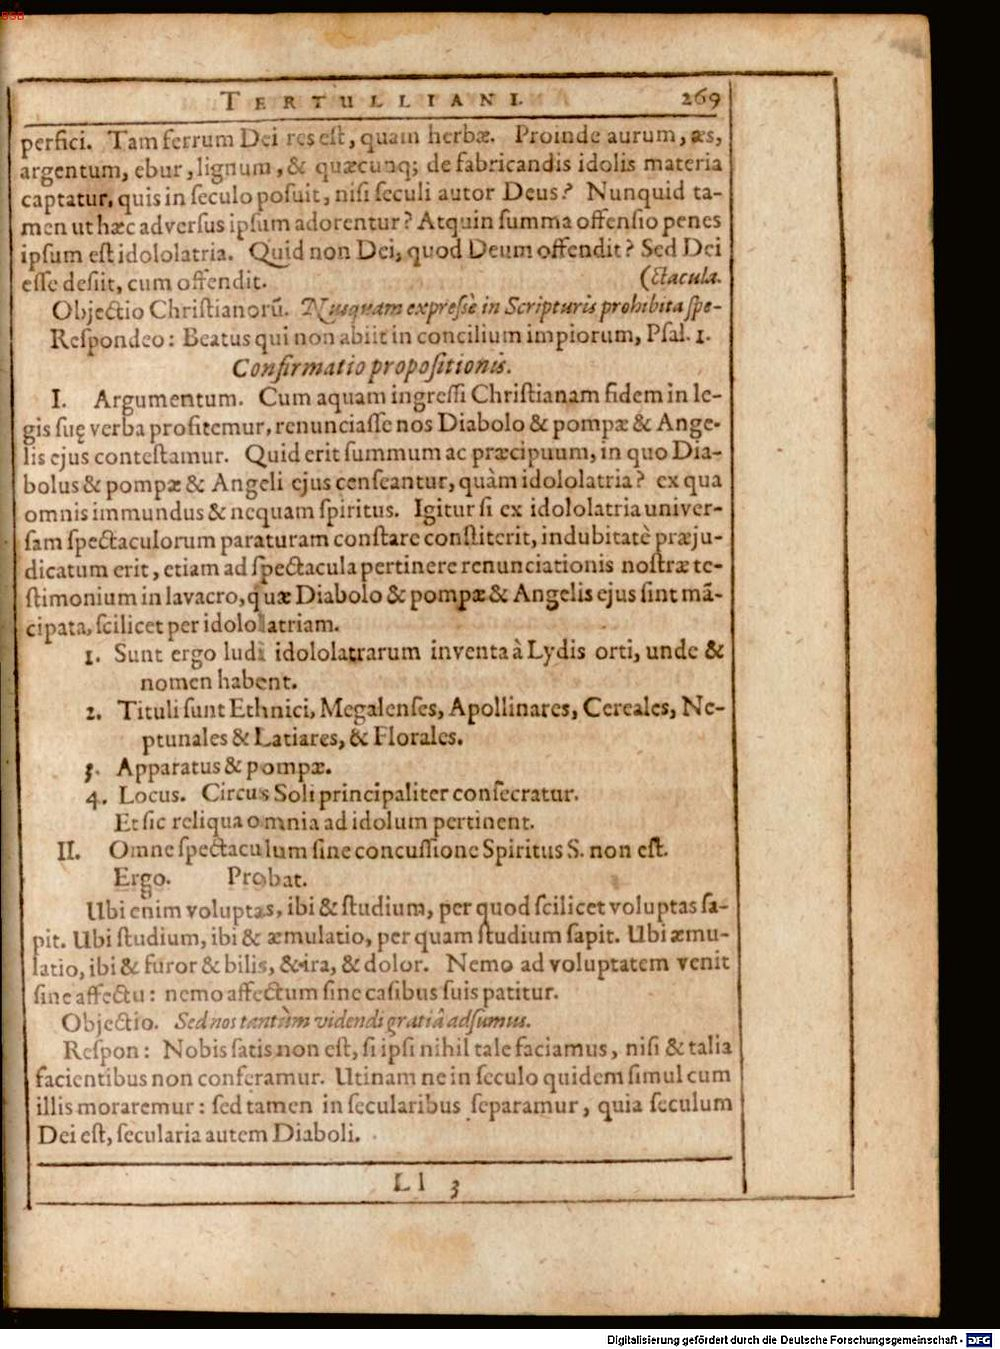 BSB
TERTULLIANI. 269
perfici. Tam ferrum Dei res est, quam herbæ. Proinde aurum, æs,
argentum, ebur, lignum, & quæcunq; de fabricandis idolis materia
captatur, quis in seculo posuit, nisi seculi autor Deus? Nunquid ta-
men ut hæc adversus ipsum adorentur? Atquin summa offensio penes
ipsum est idololatria. Quid non Dei, quod Deum offendit? Sed Dei
esse desiit, cum offendit. (ctacula.
Objectio Christianorũ. Nusquam expressè in Scripturis prohibita spe-
Respondeo: Beatus qui non abiit in concilium impiorum, Psal. 1.
Confirmatio propositionis.
I. Argumentum. Cum aquam ingressi Christianam fidem in le-
gis suę verba profitemur, renunciasse nos Diabolo & pompæ & Ange-
lis ejus contestamur. Quid erit summum ac præcipuum, in quo Dia-
bolus & pompæ & Angeli ejus censeantur, quàm idololatria? ex qua
omnis immundus & nequam spiritus. Igitur si ex idololatria univer-
sam spectaculorum paraturam constare constiterit, indubitatè præju-
dicatum erit, etiam ad spectacula pertinere renunciationis nostræ te-
stimonium in lavacro, quæ Diabolo & pompæ & Angelis ejus sint mã-
cipata, scilicet per idololatriam.
1. Sunt ergo ludi idololatrarum inventa à Lydis orti, unde &
nomen habent.
2. Tituli sunt Ethnici, Megalenses, Apollinares, Cereales, Ne-
ptunales & Latiares, & Florales.
3. Apparatus & pompæ.
4. Locus. Circus Soli principaliter consecratur.
Et sic reliqua omnia ad idolum pertinent.
II. Omne spectaculum sine concussione Spiritus S. non est.
Ergo. Probat.
Ubi enim voluptas, ibi & studium, per quod scilicet voluptas sa-
pit. Ubi studium, ibi & æmulatio, per quam studium sapit. Ubi æmu-
latio, ibi & furor & bilis, & ira, & dolor. Nemo ad voluptatem venit
sine affectu: nemo affectum sine casibus suis patitur.
Objectio. Sed nos tantùm videndi gratiâ adsumus.
Respon: Nobis satis non est, si ipsi nihil tale faciamus, nisi & talia
facientibus non conferamur. Utinam ne in seculo quidem simul cum
illis moraremur: sed tamen in secularibus separamur, quia seculum
Dei est, secularia autem Diaboli.
Ll 3
Digitalisierung gefördert durch die Deutsche Forschungsgemeinschaft - DFG